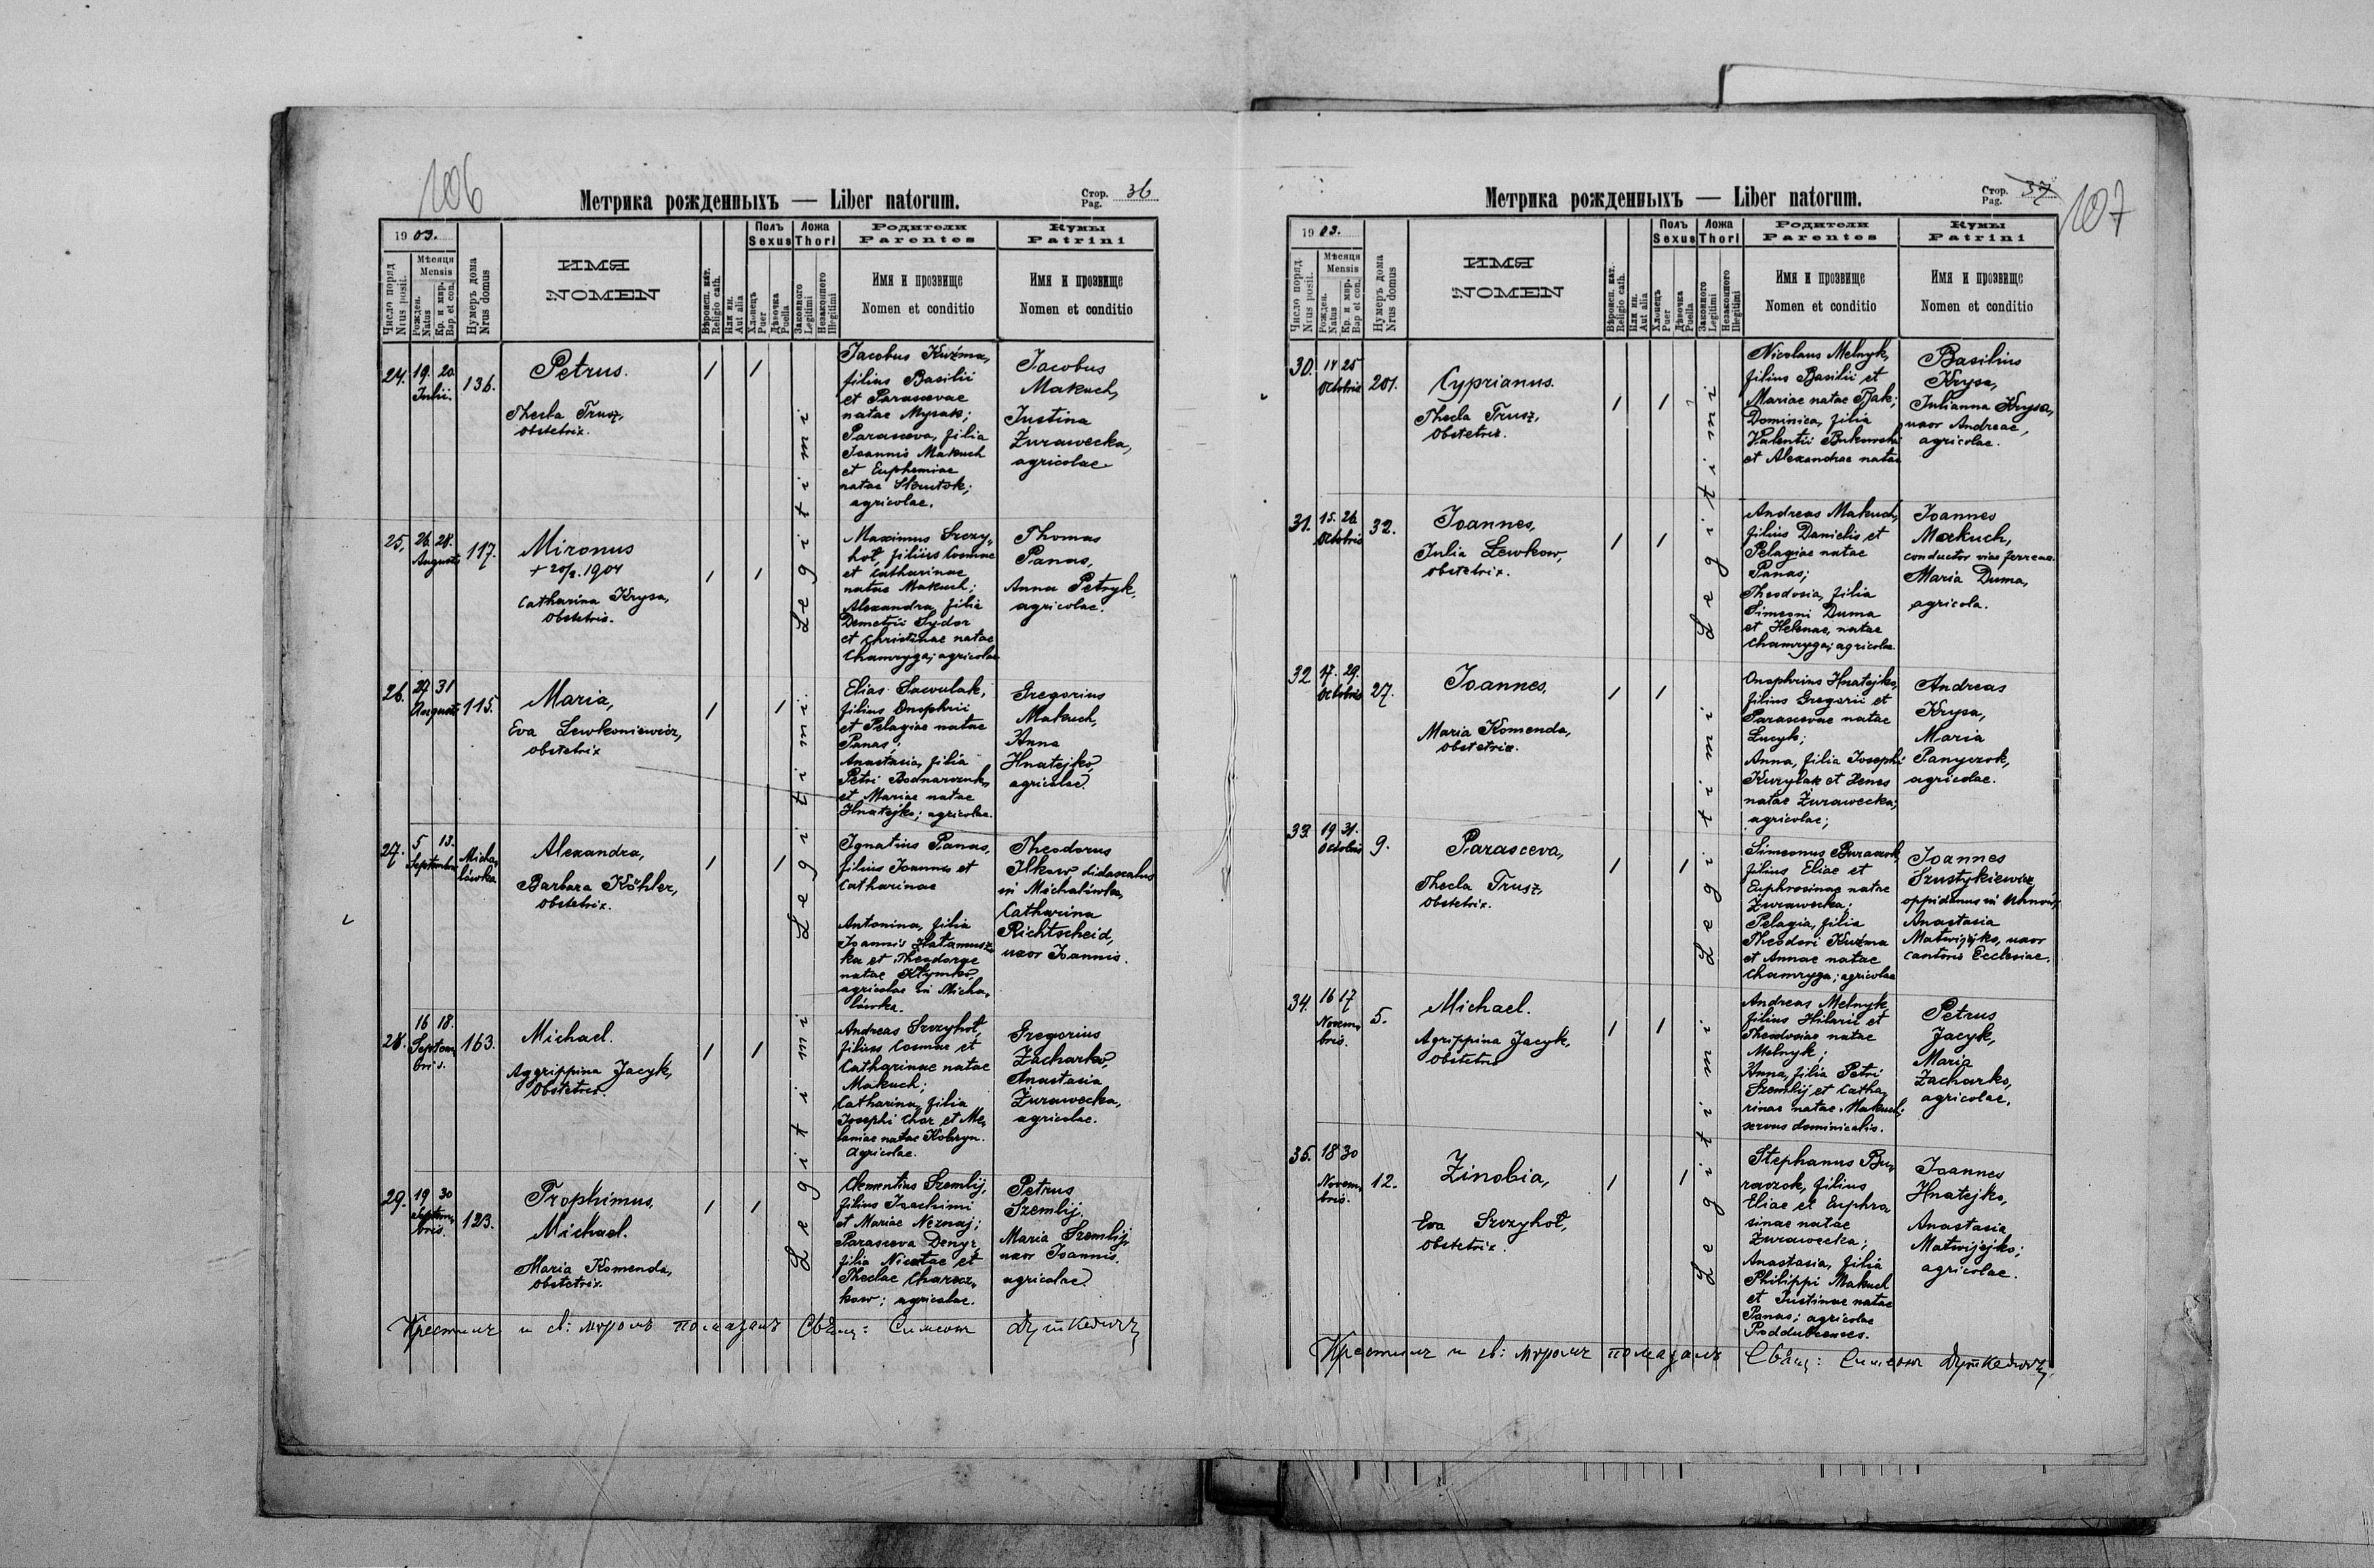 106
Метрика рожденныхъ — Liber natorum.
Стор. Pag. 36
1903.
Число поряд. Nrus posit.
Мѣсяця Mensis
Рожден. Natus
Кр. и мѵр. Bap et con.
Нумеръ дома Nrus domus
ИМЯ
NOMEN
Вѣроисп. кат. Religio cath.
Или ин. Aut alia
Полъ Sexus
Хлопецъ Puer
Дѣвочка Puella
Ложа Thori
Законного Legitimi
Незаконного Illegitimi
Родители
Parentes
Имя и прозвище
Nomen et conditio
Кумы
Patrini
Имя и прозвище
Nomen et conditio
24. 19. 20 Julii. 136.
Petrus.
Thecla Trusz,
obstetrix.
Legitimi
Jacobus Kuźma,
filius Basilii
et Parascevae
natae Mysak;
Parasceva, filia
Joannis Makuch
et Euphemiae
natae
agricolae.
Jacobus
Makuch,
Justina
Żurawecka,
agricolae.
25. 26. 28. Augusti 117.
Mironus
+ 20/2. 1904
Catharina Krysa,
obstetrix.
Maximus Szczy-
hoł, filius Cosmae
et Catharinae
natae Makuch;
Alexandra, filia
Demetrii Sydor
et Christinae natae
Chamryga; agricolae
Thomas
Panas,
Anna Petryk,
agricolae.
26. 27 31 Augusti 115.
Maria,
Eva Lewkoniewicz,
obstetrix
Legitimi
Elias Sawulak,
filius Onophrii
et Pelagiae natae
Panas;
Anastasia, filia
Petri Bodnarczuk,
et Mariae natae
Hnatejko; agricolae.
Gregorius
Makuch,
Anna
Hnatejko,
agricolae.
27. 5 13. Septembris Micha-
łówka
Alexandra,
Barbara Köhler,
obstetrix.
Ignatius Panas,
filius Joannis et
Catharinae
Antonina, filia
Joannis
ka et Theodorae
natae Klymko,
agricolae in Micha-
łówka.
Theodorus
Ilkow didascalus
in Michałówka,
Catharina
Richtscheid,
uxor Joannis.
28. 16 18. Septem-
bris. 163.
Michael.
Aggrippina Jacyk,
obstetrix.
Legitimi
Andreas Szczyhoł,
filius Cosmae et
Catharinae natae
Makuch;
Catharina, filia
Josephi Chor et Me-
laniae natae Kobryn.
agricolae.
Gregorius
Zacharko,
Anastasia
Żurawecka,
agricolae.
29. 19 30 Septem-
bris. 123.
Trophimus,
Michael.
Maria Komenda,
obstetrix.
Clementius Szemlij,
filius Joachimi
et Mariae Neznaj;
Parasceva Denys,
filia Nicetae et
Theclae Charcz-
kow; agricolae.
Petrus
Szemlij.
Maria Szemlij
uxor Joannis.
agricolae.
Крестилъ и св: мѵромъ помазалъ Свящ: Симеонъ Дуткевичъ
107
Метрика рожденныхъ — Liber natorum.
Стор. Pag. 37
1903.
Число поряд. Nrus posit.
Мѣсяця Mensis
Рожден. Natus
Кр. и мѵр. Bap et con.
Нумеръ дома Nrus domus
ИМЯ
NOMEN
Вѣроисп. кат. Religio cath.
Или ин. Aut alia
Полъ Sexus
Хлопецъ Puer
Дѣвочка Puella
Ложа Thori
Законного Legitimi
Незаконного Illegitimi
Родители
Parentes
Имя и прозвище
Nomen et conditio
Кумы
Patrini
Имя и прозвище
Nomen et conditio
30. 14 25 Octobris 201.
Cyprianus.
Thecla Trusz,
obstetrix.
Legitimi
Nicolaus Melnyk,
filius Basilii et
Mariae natae
Dominica, filia
Valentii Bukowski
et Alexandrae natae
Basilius
Krysa,
Julianna Krysa,
uxor Andreae,
agricolae.
31. 15. 26. Octobris 32.
Joannes,
Julia Lewkow,
obstetrix.
Andreas Makuch,
filius Danielis et
Pelagiae natae
Panas;
Theodosia, filia
Simeoni Duma
et Helenae, natae
Chamryga; agricolae
Joannes
Makuch,
conductor viae ferreae.
Maria Duma,
agricola.
32 17. 29. Octobris 27.
Joannes.
Maria Komenda,
obstetrix.
Legitimi
Onophrius Hnatejko,
filius Gregorii et
Parascevae natae
Lucyk;
Anna, filia Josephi
Kurylak et Xenes
natae Żurawecka;
agricolae;
Andreas
Krysa,
Maria
Panyczok,
agricolae.
33. 19 31. Octobris 9.
Parasceva,
Thecla Trusz,
obstetrix.
Simeonus Buraczok,
filius Eliae et
Euphrosinae natae
Żurawecka;
Pelagia, filia
Theodori Kuźma
et Annae natae
Chamryga; agricolae
Joannes
Szustykiewicz
oppidanus in Uhnów,
Anastasia
Matwijejko, uxor
cantoris Ecclesiae.
34. 16 17 Novem-
bris. 5.
Michael.
Agrippina Jacyk,
obstetrix
Legitimi
Andreas Melnyk
filius Hilarii et
Theodosiae natae
Melnyk;
Anna, filia Petri
Szemlij et Catha-
rinae natae Makuch;
servus dominicalis.
Petrus
Jacyk,
Maria
Zacharko,
agricolae.
35. 18 30 Novem-
bris. 12.
Zinobia,
Eva Szczyhoł,
obstetrix.
Stephanus Bu-
raczok, filius
Eliae et Euphro
sinae natae
Żurawecka;
Anastasia, filia
Philippi Makuch
et Justinae natae
Panas; agricolae
Poddubcenses.
Joannes
Hnatejko,
Anastasia
Matwijejko;
agricolae.
Крестилъ и св: мѵромъ помазалъ Свящ: Симеонъ Дуткевичъ